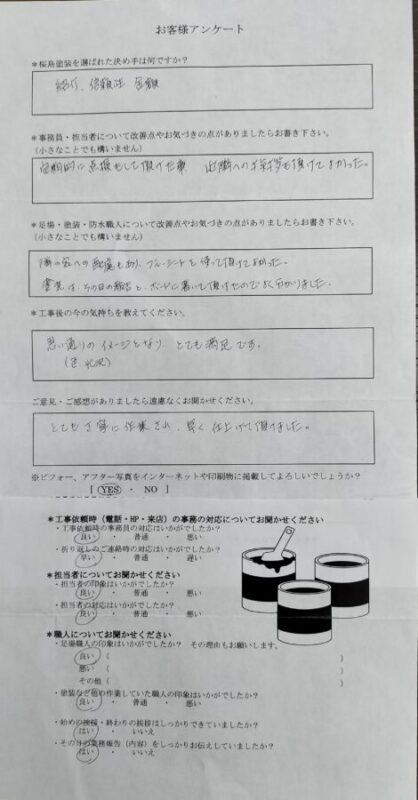 お客様アンケート
*桜島塗装を選ばれた決め手は何ですか?
紹介、信頼性、金額
*事務員・担当者について改善点やお気づきの点がありましたらお書き下さい。
(小さなことでも構いません)
定期的に点検もして頂けた事 近隣への挨拶も頂けてよかった。
*足場・塗装・防水職人について改善点やお気づきの点がありましたらお書き下さい。
(小さなことでも構いません)
隣の家への配慮もあり、ブルーシートを使って頂けてよかった。
その日の報告を、ボードに書いて頂けたのでよく分かりました。
*工事後の今の気持ちを教えてください。
思い通りのイメージとなり、とても満足です。
ご意見・ご感想がありましたら遠慮なくお聞かせください。
とても丁寧に作業され、早く仕上げて頂けました。
※ビフォー、アフター写真をインターネットや印刷物に掲載してよろしいでしょうか?
[ YES ・ NO ]
*工事依頼時(電話・HP・来店)の事務の対応についてお聞かせください
・工事依頼時の事務員の対応はいかがでしたか?
良い ・ 普通 ・ 悪い
・折り返しのご連絡時の対応はいかがでしたか?
早い ・ 普通 ・ 遅い
*担当者についてお聞かせください
・担当者の印象はいかがでしたか?
良い ・ 普通 ・ 悪い
・担当者の対応はいかがでしたか?
良い ・ 普通 ・ 悪い
*職人についてお聞かせください
・足場職人の印象はいかがでしたか? その理由もお願いします。
良い ( )
悪い ( )
その他 ( )
・塗装など他の作業していた職人の印象はいかがでしたか?
良い ・ 普通 ・ 悪い
・始めの挨拶・終わりの挨拶はしっかりできていましたか?
はい ・ いいえ
・その日の業務報告(内容)をしっかりお伝えしていましたか?
はい ・ いいえ